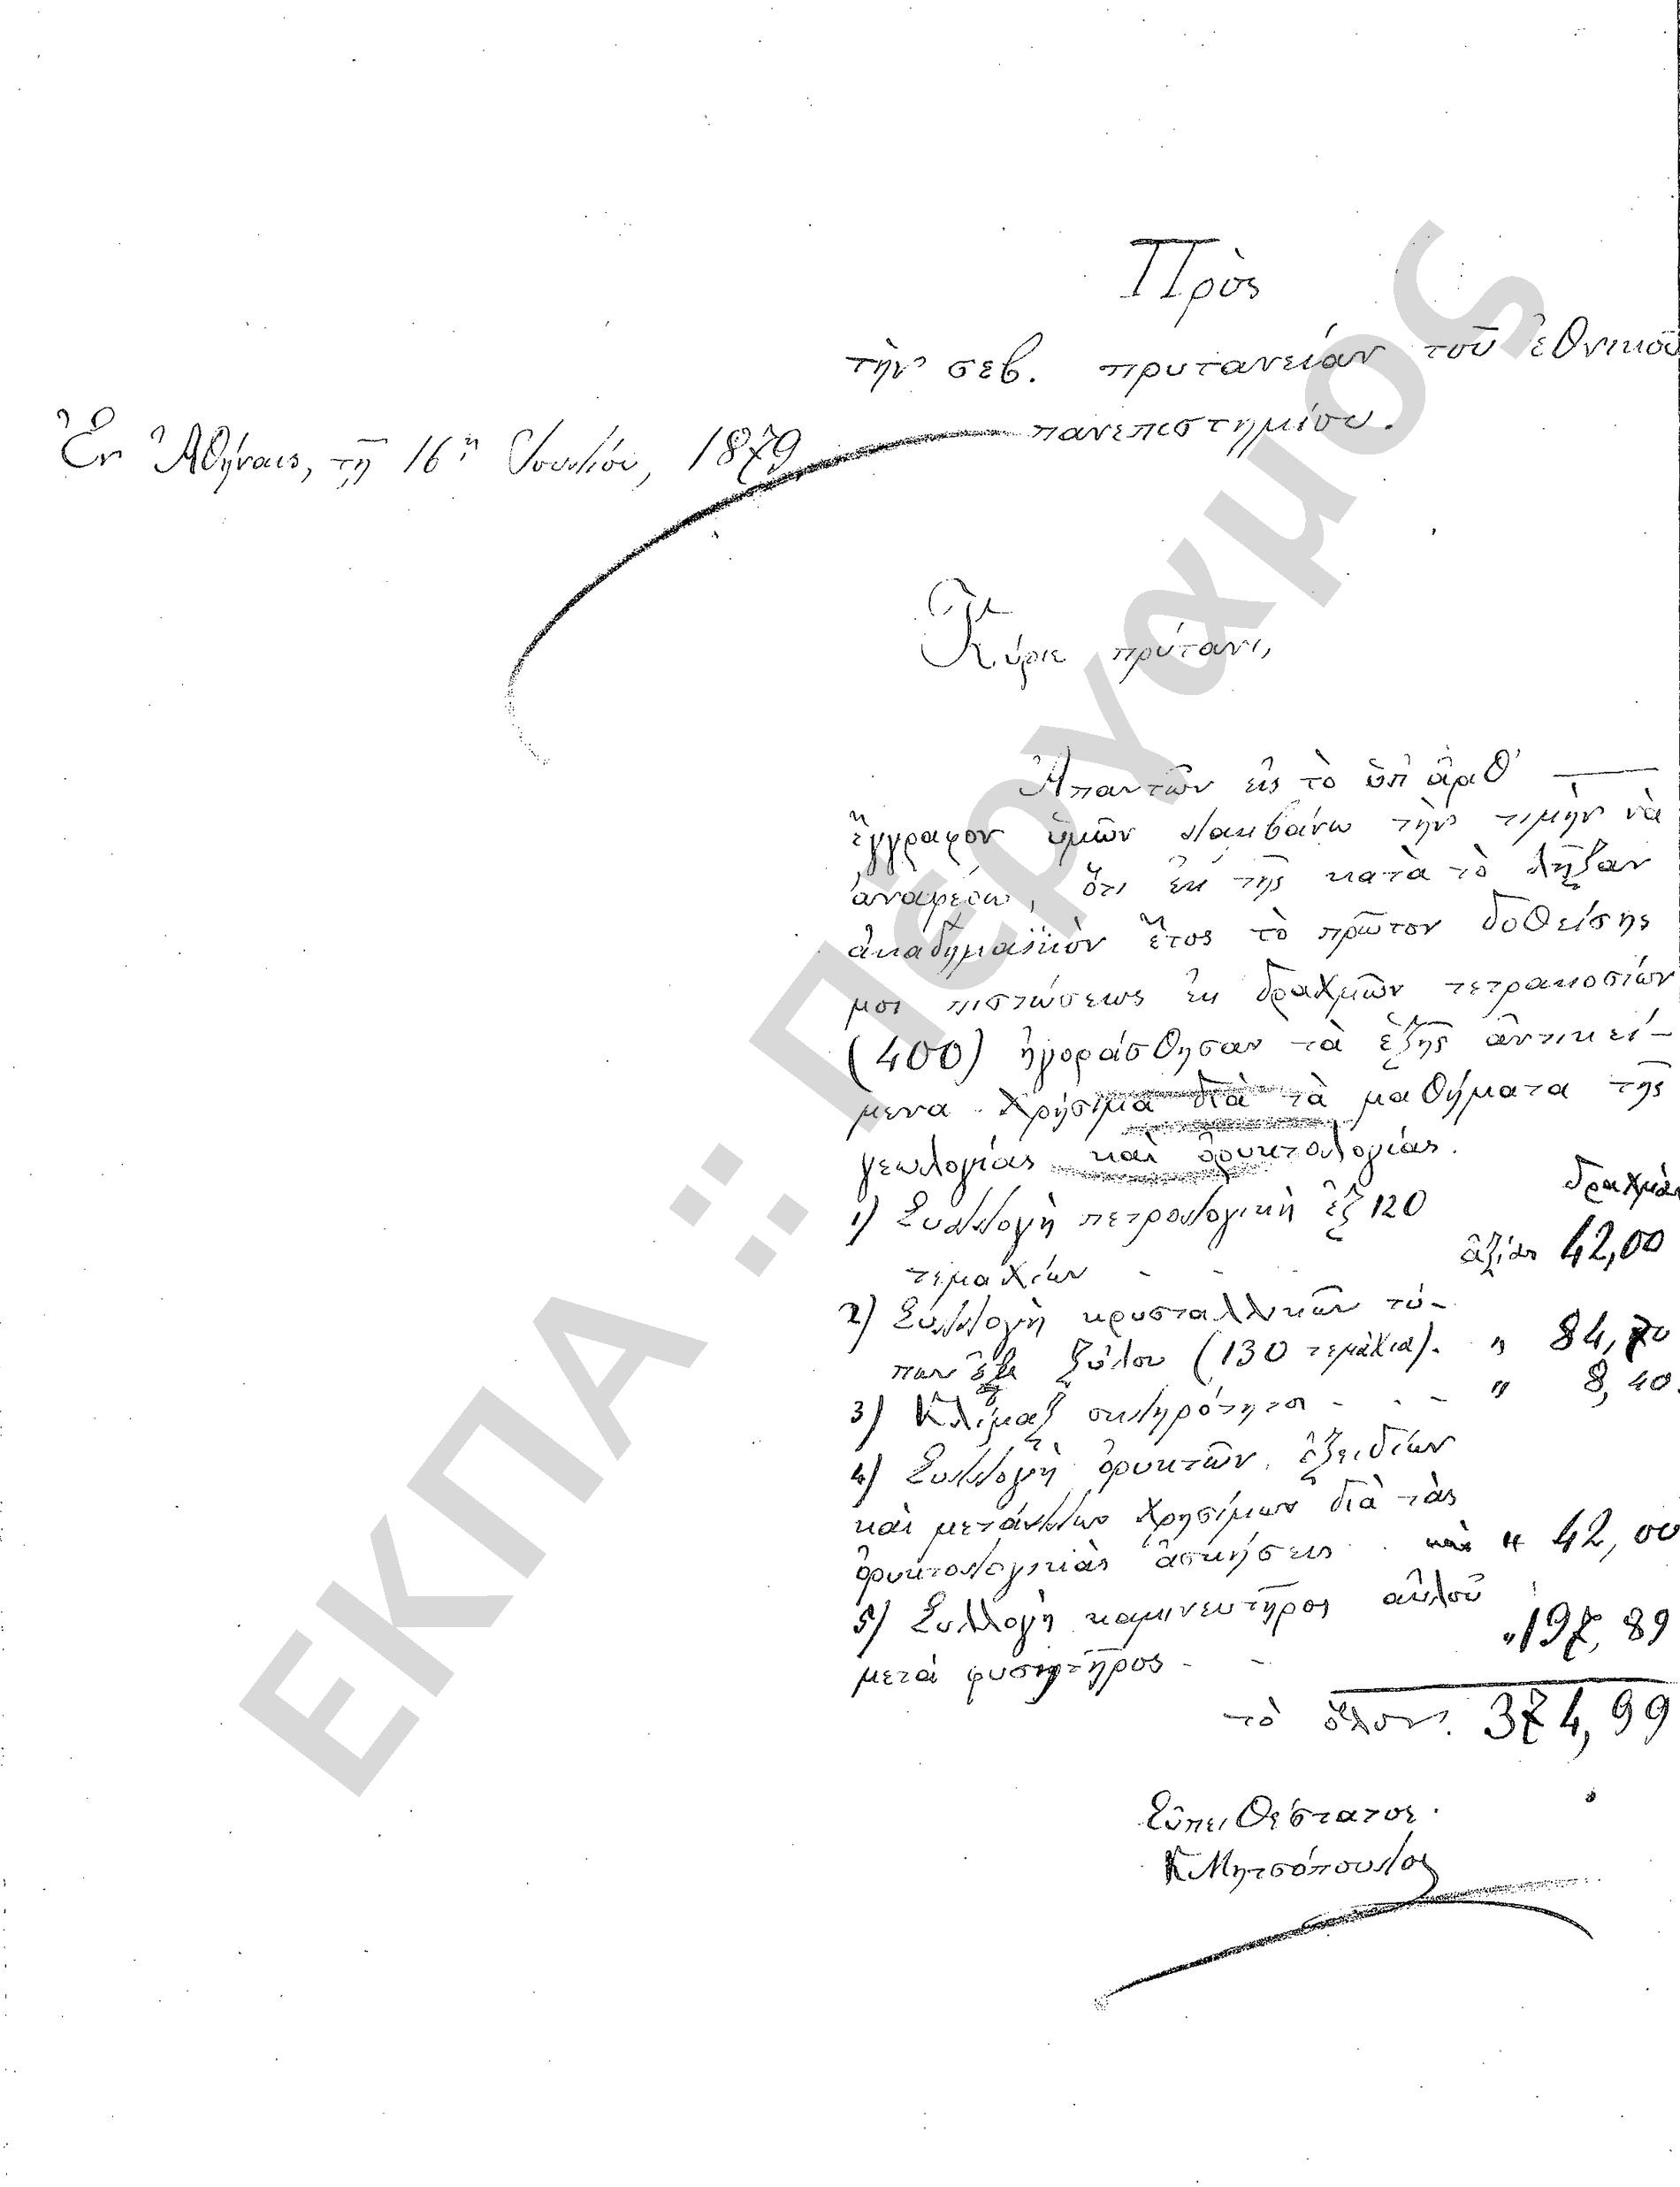 Πρὸς
τὴν σεβ. πρυτανείαν τοῦ ἐθνικοῦ
πανεπιστημίου.
Ἐν Ἀθήναις, τῇ 16ῃ Ἰουλίου, 1879
Κύριε πρύτανι,
Ἀπαντῶν εἰς τὸ ὑπ' ἀριθ'
ἔγγραφον ὑμῶν λαμβάνω τὴν τιμὴν νὰ
ἀναφέρω, ὅτι ἐκ τῆς κατὰ τὸ λῆξαν
ἀκαδημαϊκὸν ἔτος τὸ πρῶτον δοθείσης
μοι πιστώσεως ἐκ δραχμῶν τετρακοσίων
(400) ἠγοράσθησαν τὰ ἑξῆς ἀντικεί-
μενα χρήσιμα διὰ τὰ μαθήματα τῆς
γεωλογίας καὶ ὀρυκτολογίας.
δραχμὰς
1) Συλλογὴ πετρολογικὴ ἐξ 120
τεμαχίων - - ἀξίας 42,00
2) Συλλογὴ κρυσταλλικῶν τύ-
πων ἐκ ξύλου (130 τεμάχια). " 84,70
3) Κλίμαξ σκληρότητος - - - " 8,40.
4) Συλλογὴ ὀρυκτῶν, ὀξειδίων
καὶ μετάλλων χρησίμων διὰ τὰς
ὀρυκτολογικὰς ἀσκήσεις " 42,00
5) Συλλογὴ καμινευτῆρος αὐλοῦ
μετὰ φυσητῆρος - - " 197,89
τὸ ὅλον. 374,99
Εὐπειθέστατος.
Κ Μητσόπουλος
ΕΚΠΑ :: Πέργαμος